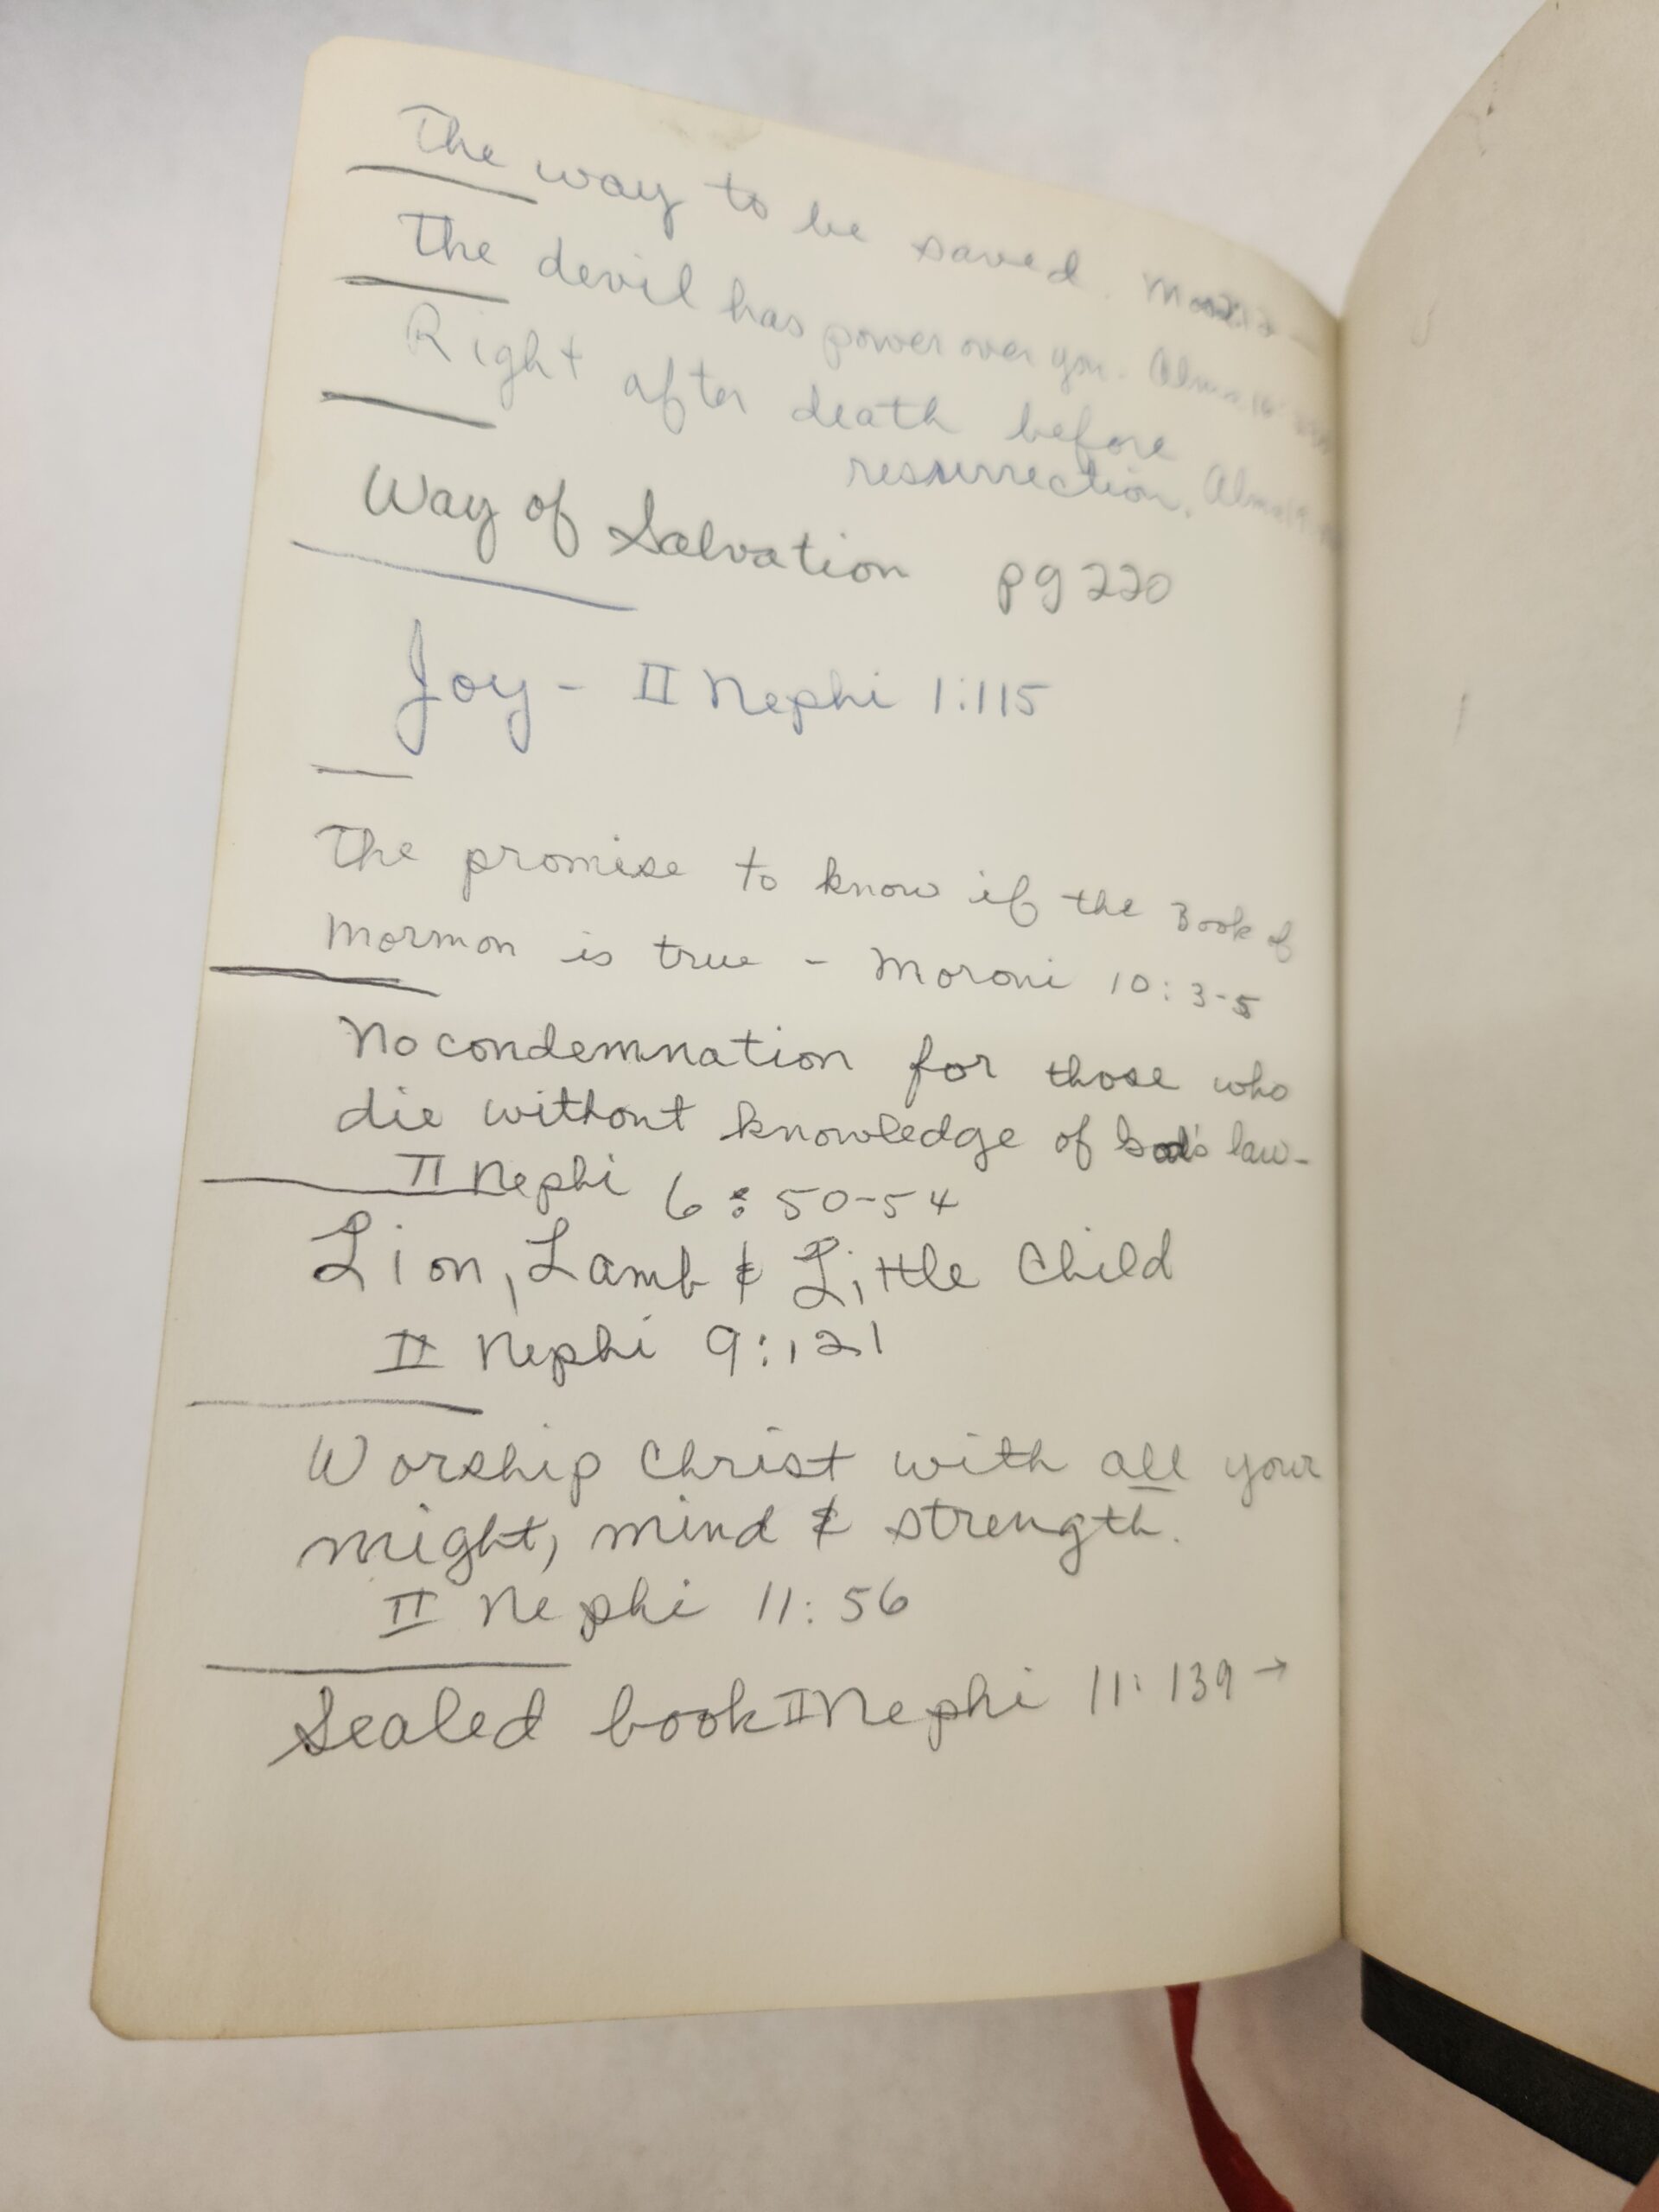 The way to be saved.
The devil has power over you. Alma
Right after death before
resurrection. Alma
Way of Salvation pg 220
Joy - II Nephi 1:115
The promise to know if the Book of
Mormon is true - Moroni 10:3-5
No condemnation for those who
die without knowledge of God's law-
II Nephi 6:50-54
Lion, Lamb & Little Child
II Nephi 9:121
Worship Christ with all your
might, mind & strength.
II Nephi 11:56
Sealed book II Nephi 11:139 →